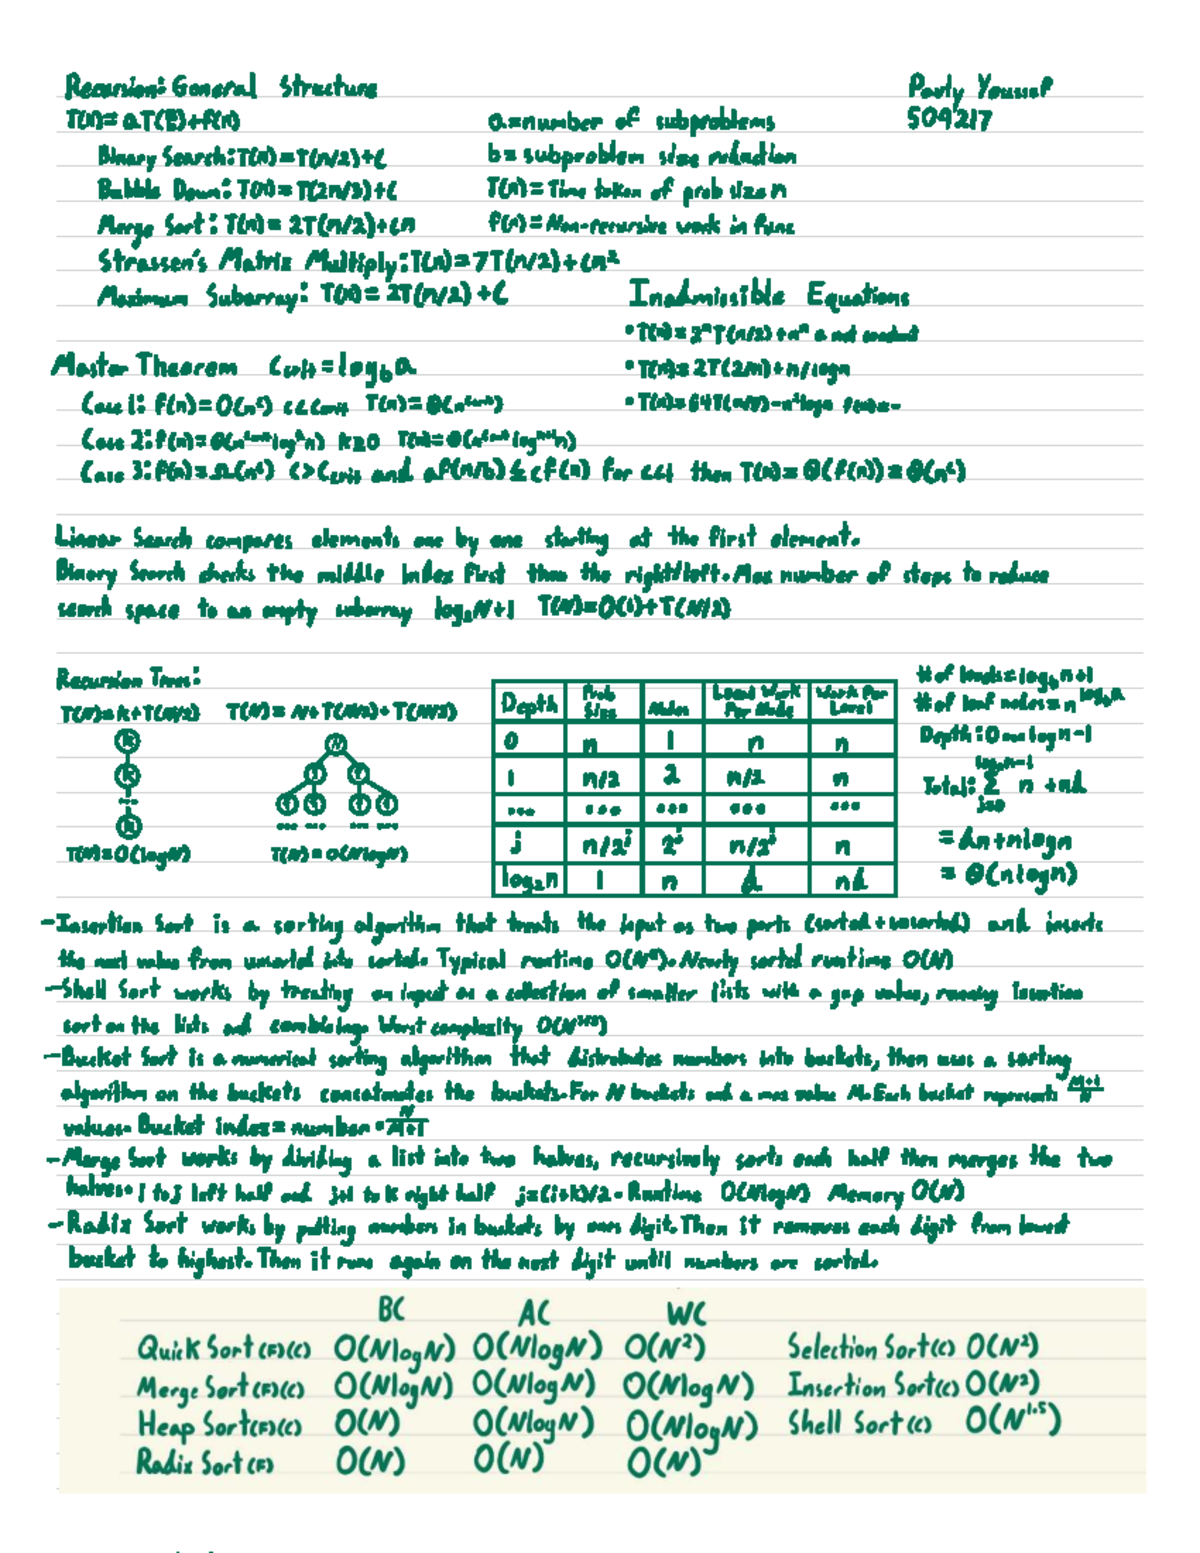 Recursion: General Structure
Party Youssef
509217
T(n) = aT(n/b) + f(n)
a = number of subproblems
Binary Search: T(n) = T(n/2) + C
b = subproblem size reduction
Bubble Down: T(n) = T(2n/3) + C
T(n) = Time taken of prob size n
Merge Sort: T(n) = 2T(n/2) + cn
f(n) = Non-recursive work in func
Strassen's Matrix Multiply: T(n) = 7T(n/2) + cn²
Maximum Subarray: T(n) = 2T(n/2) + C
Inadmissible Equations
• T(n) = 2ⁿT(n/2) + nⁿ a not constant
Master Theorem Ccrit = log_b a
• T(n) = 2T(n/2) + n/logn
Case 1: f(n) = O(n^c) c<Ccrit T(n) = Θ(n^Ccrit)
• T(n) = 64T(n/8) - n²logn
Case 2: f(n) = Θ(n^Ccrit log^k n) k≥0 T(n) = Θ(n^Ccrit log^k+1 n)
Case 3: f(n) = Ω(n^c) c>Ccrit and af(n/b) ≤ cf(n) for c<1 then T(n) = Θ(f(n)) = Θ(n^c)
Linear Search compares elements one by one starting at the first element.
Binary Search checks the middle index first then the right/left. Max number of steps to reduce
search space to an empty subarray log₂N+1 T(N) = O(1) + T(N/2)
Recursion Trees:
T(N) = k + T(N/2) T(N) = N + T(N/2) + T(N/2)
k
k
...
k
T(N) = O(logN)
N
... ... ... ...
T(N) = O(NlogN)
Depth Prob Size Nodes Local Work Per Node Work Per Level
0 n 1 n n
1 n/2 2 n/2 n
... ... ... ... ...
j n/2^j 2^j n/2^j n
log₂n 1 n d nd
# of levels = log_b n+1
# of leaf nodes = n^log_b a
Depth: 0 → logn-1
Total: Σ n + nd
log₂n-1
j=0
= dn + nlogn
= Θ(nlogn)
- Insertion Sort is a sorting algorithm that treats the input as two parts (sorted + unsorted) and inserts
the next value from unsorted into sorted. Typical runtime O(N²). Nearly sorted runtime O(N)
- Shell Sort works by treating an input as a collection of smaller lists with a gap value, running insertion
sort on the lists and combining. Worst complexity O(N^3/2)
- Bucket Sort is a numerical sorting algorithm that distributes numbers into buckets, then uses a sorting
algorithm on the buckets concatenates the buckets. For N buckets and a max value M. Each bucket represents M+1/N
values. Bucket index = number • N/M+1
- Merge Sort works by dividing a list into two halves, recursively sorts each half then merges the two
halves. i to j left half and j+1 to k right half j=(i+k)/2. Runtime O(NlogN) Memory O(N)
- Radix Sort works by putting numbers in buckets by ones digit. Then it removes each digit from lowest
bucket to highest. Then it runs again on the next digit until numbers are sorted.
BC AC WC
Quick Sort (F)(C) O(NlogN) O(NlogN) O(N²) Selection Sort(C) O(N²)
Merge Sort(F)(C) O(NlogN) O(NlogN) O(NlogN) Insertion Sort(C) O(N²)
Heap Sort(F)(C) O(N) O(NlogN) O(NlogN) Shell Sort(C) O(N^1.5)
Radix Sort (F) O(N) O(N) O(N)